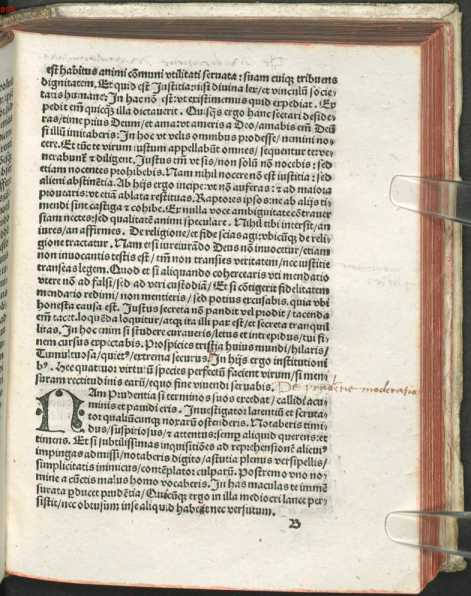 est habitus animi cõmuni vtilitati seruata: suam cuiq; tribuens
dignitatem. Et quid est Justicia: nisi diuina lex/et vinculũ socie
tatis humane? In hac nõ est: vt existimemus quid expediat. Ex
pedit em̃ quicq̃ illa dictauerit. Quisq̃s ergo hanc sectari deside
ras/time prius Deum/et ama: vt ameris a Deo/amabis em̃ Deũ
si illũ imitaberis: In hoc vt velis omnibus prodesse/nemini no
cere. Et tũc te virum iustum appellabũt omnes/sequentur te: ve
nerabunt̃ ⁊ diligent. Justus em̃ vt sis/non solũ nõ nocebis: sed
etiam nocentes prohibebis. Nam nihil nocere nõ est iusticia: sed
alieni abstinẽtia. Ab hijs ergo incipe: vt nõ auferas: ⁊ ad maiora
prouearis: vt etiã ablata restituas. Raptores ipsos: ne ab alijs ti
mendi sint castiga ⁊ cohibe. Ex nulla voce ambiguitate cõtrouer
siam nectes: sed qualitatẽ animi speculare. Nihil tibi intersit/an
iures/an affirmes. De religione/et fide scias agi: vbicũq; de reli
gione tractatur. Nam etsi iureiurãdo Deus nõ inuocetur/etiam
non inuocantis testis est/tñ non transies veritatem/nec iusticie
transeas legem. Quod et si aliquando coherceraris vti mendatio
vtere nõ ad falsi/sed ad veri custodiã/Et si cõtigerit fidelitatem
mendatio redimi/non mentieris/sed potius excusabis. quia vbi
honesta causa est. Justus secreta nõ pandit vel prodit/tacenda
em̃ tacet. loquẽda loquitur/atq; ita illi pax est/et secreta tranquil
litas. In hoc enim si studere curaueris/letus et intrepidus/tui fi
nem cursus expectabis. Prospicies tristia huius mundi/hilaris/
Tumultuosa/quiet9/extrema securus. In hijs ergo institutioni
b9. Hec quatuor virtutũ species perfectũ facient virum/si men
suram rectitudinis earũ/equo fine viuendi seruabis. De prudentie moderatio
NAm Prudentia si terminos suos excedat/callidi acu
minis et pauidi eris. Inuestigator latentiũ et scruta
tor qualiũcunq; noxarũ ostẽderis. Notaberis timi
dus/suspitiosus/⁊ attentus: semp̱ aliquid querens: et
timens. Et si subtilissimas inquisitiões ad rep̱rehensionẽ alicui9
impingas admissi/notaberis digito/astutia plenus versipellis/
simplicitatis inimicus/contẽplator culparũ. Postremo vno no
mine a cũctis malus homo vocaberis. In has maculas te immẽ
surata p̱ducet prudẽtia/Quicũq; ergo in illa mediocri lance per
sistit/nec obtusum in se aliquid habet nec versutum.
B